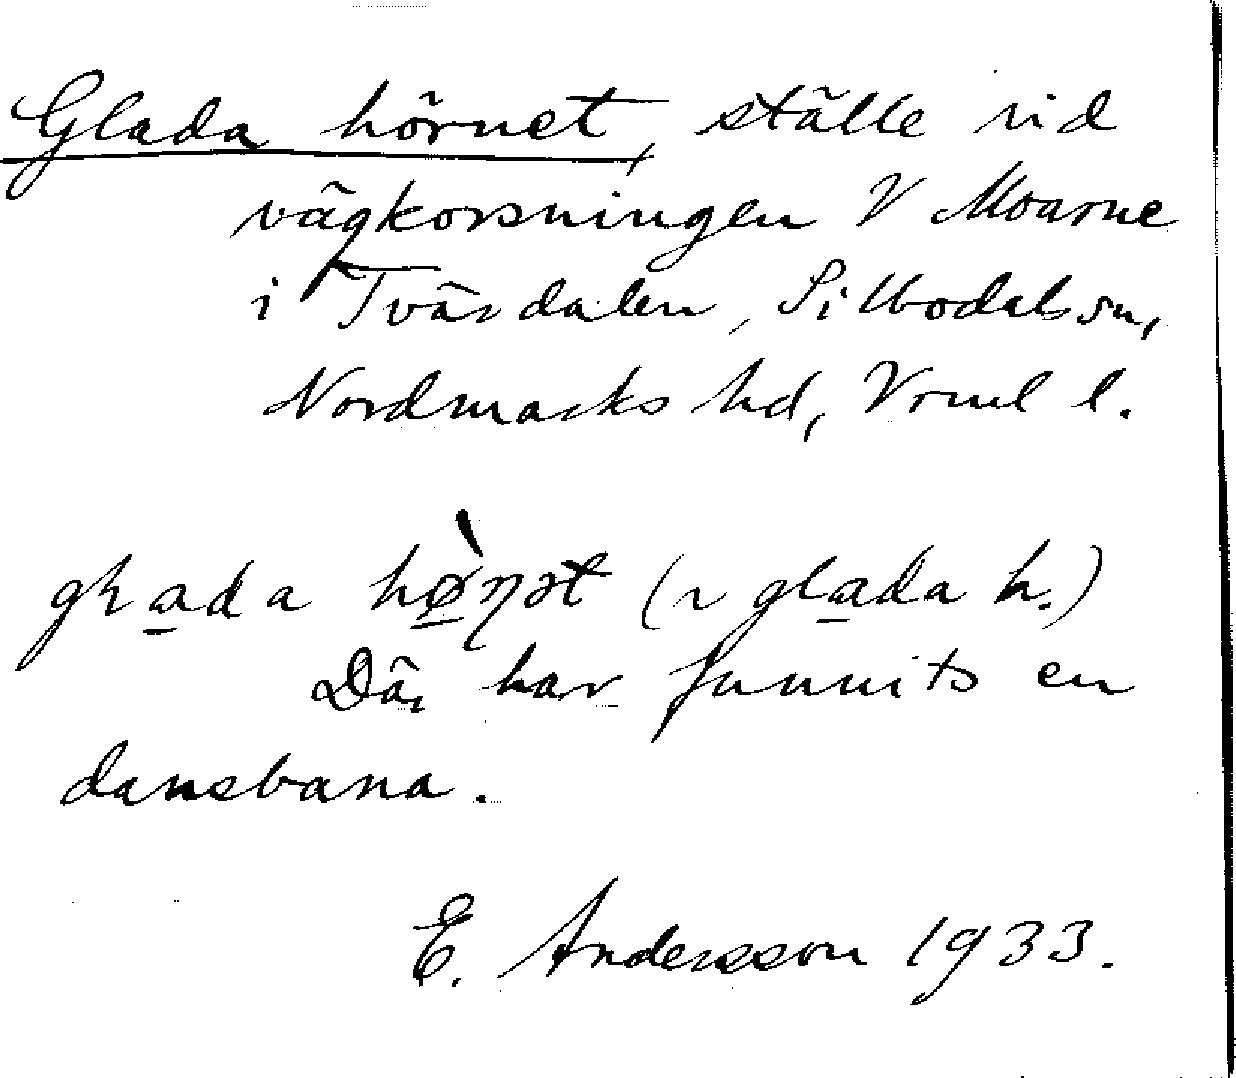 Glada hörnet, ställe vid
vägkorsningen V Moarne
i Tvärdalen, Silbodals sn,
Nordmarks hd, Vrml l.
glada hø̀ɳət (~ glada h.)
Där har funnits en
dansbana.
E. Andersson 1933.